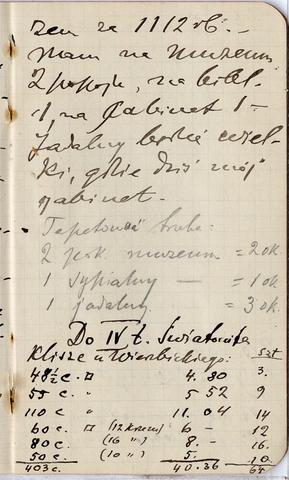 zem za 1112 rb. –
mam na muzeum
2 pokoje, na bibl.
1, na gabinet 1 –
jadalny będzie wiel-
ki, gdzie dziś mój
gabinet. –
Tapetować trzeba:
2 pok. muzeum = 2 ok.
1 sypialny — = 1 ok
1 jadalny = 3 ok.
Do IV t. Światowita
Klisze u Wierzbickiego: Szt
48½ c. □ 4. 80 3.
55 c. " 5 52 9
110 c " 11. 04 14
60 c. □ (12 Krzem) 6 – 12
80 c. (16 ") 8. – 16.
50 c. (10 ") 5. 10.
403 c. 40.36 64.